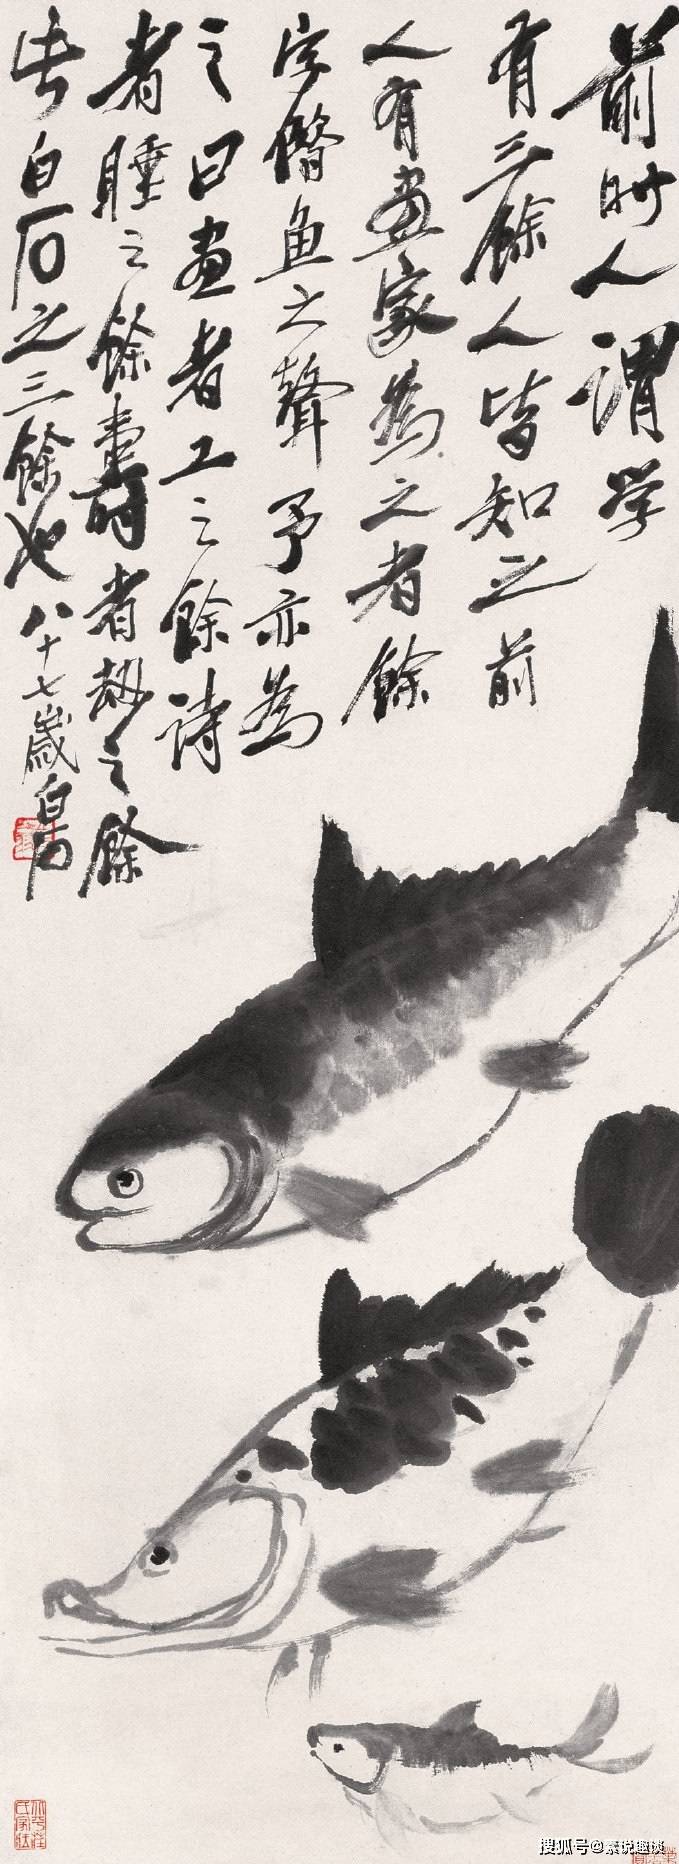 前时人謂学
有三餘人皆知之前
人有畫家為之者餘
字魚之聲予亦為
之曰畫者工之餘詩
者睡之餘壽者劫之餘
此白石之三餘也八十七歲白石
搜狐号@素说趣谈